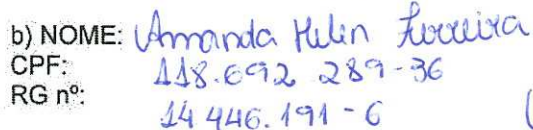 b) NOME: Amanda Helen Ferreira
CPF: 118.692 289-36
RG nº: 14 446.191-6